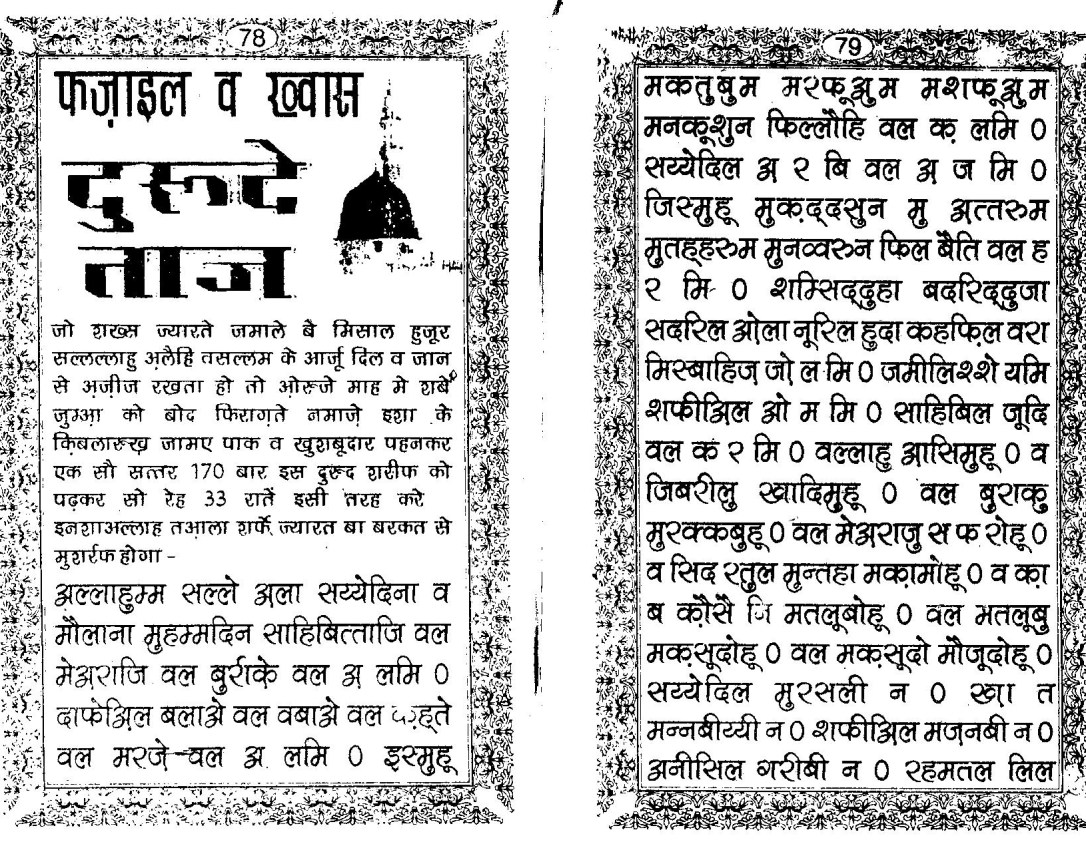 78
फज़ाइल व ख्वास
दुरूदे
ताज
जो शख्स ज्यारते जमाले बै मिसाल हुजूर
सल्लल्लाहु अ़लैहि वसल्लम के आर्जू दिल व जान
से अज़ीज रखता हो तो ओरूजे माह मे शबे
जुम्आ को बोद फिरागते नमाजे़ इशा के
कि़बलारूख़ जामए पाक व खुशबूदार पहनकर
एक सौ सत्तर 170 बार इस दुरूद शरीफ को
पढ़कर सो रेह 33 रातें इसी तरह करे
इनशाअल्लाह तआला शर्फे ज्यारत बा बरकत से
मुशर्रफ होगा -
अल्लाहुम्म सल्ले अ़ला सय्येदिना व
मौलाना मुहम्मदिन साहिबित्ताजि वल
मेअ़राजि वल बुर्राके वल अ़ लमि 0
दाफेअ़िल बलाअे वल वबाअे वल
वल मरज़े वल अ लमि 0 इस्मुहू
79
मकतुबुम मरफूअुम मशफूअुम
मनकूशुन फिल्लौहि वल क़ लमि 0
सय्येदिल अ़ र बि वल अ़ ज मि 0
जिस्मुहू मुक़द्दसुन मु अत्तरुम
मुतह्हरुम मुनव्वरुन फिल बैति वल ह
र मि 0 शम्सिद्दुहा बदरिद्दुजा
सदरिल ओ़ला नूरिल हुदा कहफिल वरा
मिस्बाहिज़ जो़ ल मि 0 जमीलिश्शे यमि
शफीअ़िल ओ म मि 0 साहिबिल जूदि
वल क र मि 0 वल्लाहु आसिमुहू 0 व
जिबरीलु खादिमुहू 0 वल बुराकु
मुरक्कबुहू 0 वल मेअ़राजु स फ रोहू 0
व सिद रतुल मुन्तहा मका़मोहू 0 व का़
ब क़ौसै मतलूबोहू 0 वल मतलूबु
मक़सूदोहू 0 वल मक़सूदो मौजूदोहू 0
सय्येदिल मुरसली न 0 खा़ त
मन्नबीय्यी न 0 शफीअ़िल मज़नबी न 0
अनीसिल गरीबी न 0 रहमतल लिल